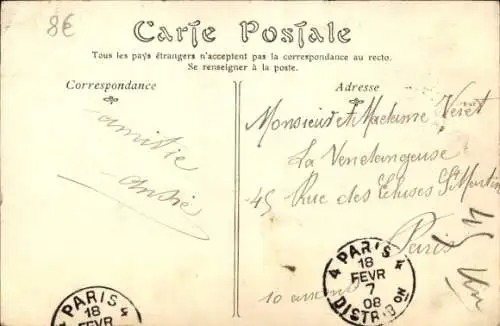 8€
Carte Postale
Tous les pays étrangers n'acceptent pas la correspondance au recto.
Se renseigner à la poste.
Correspondance
Adresse
amitié
André
Monsieur et Madame Veret
La Vendangeuse
45 Rue des Ecluses St Martin
Paris
10
4 PARIS 4
18
FEVR
7
08
DISTRIB ON
PARIS
18
FEVR